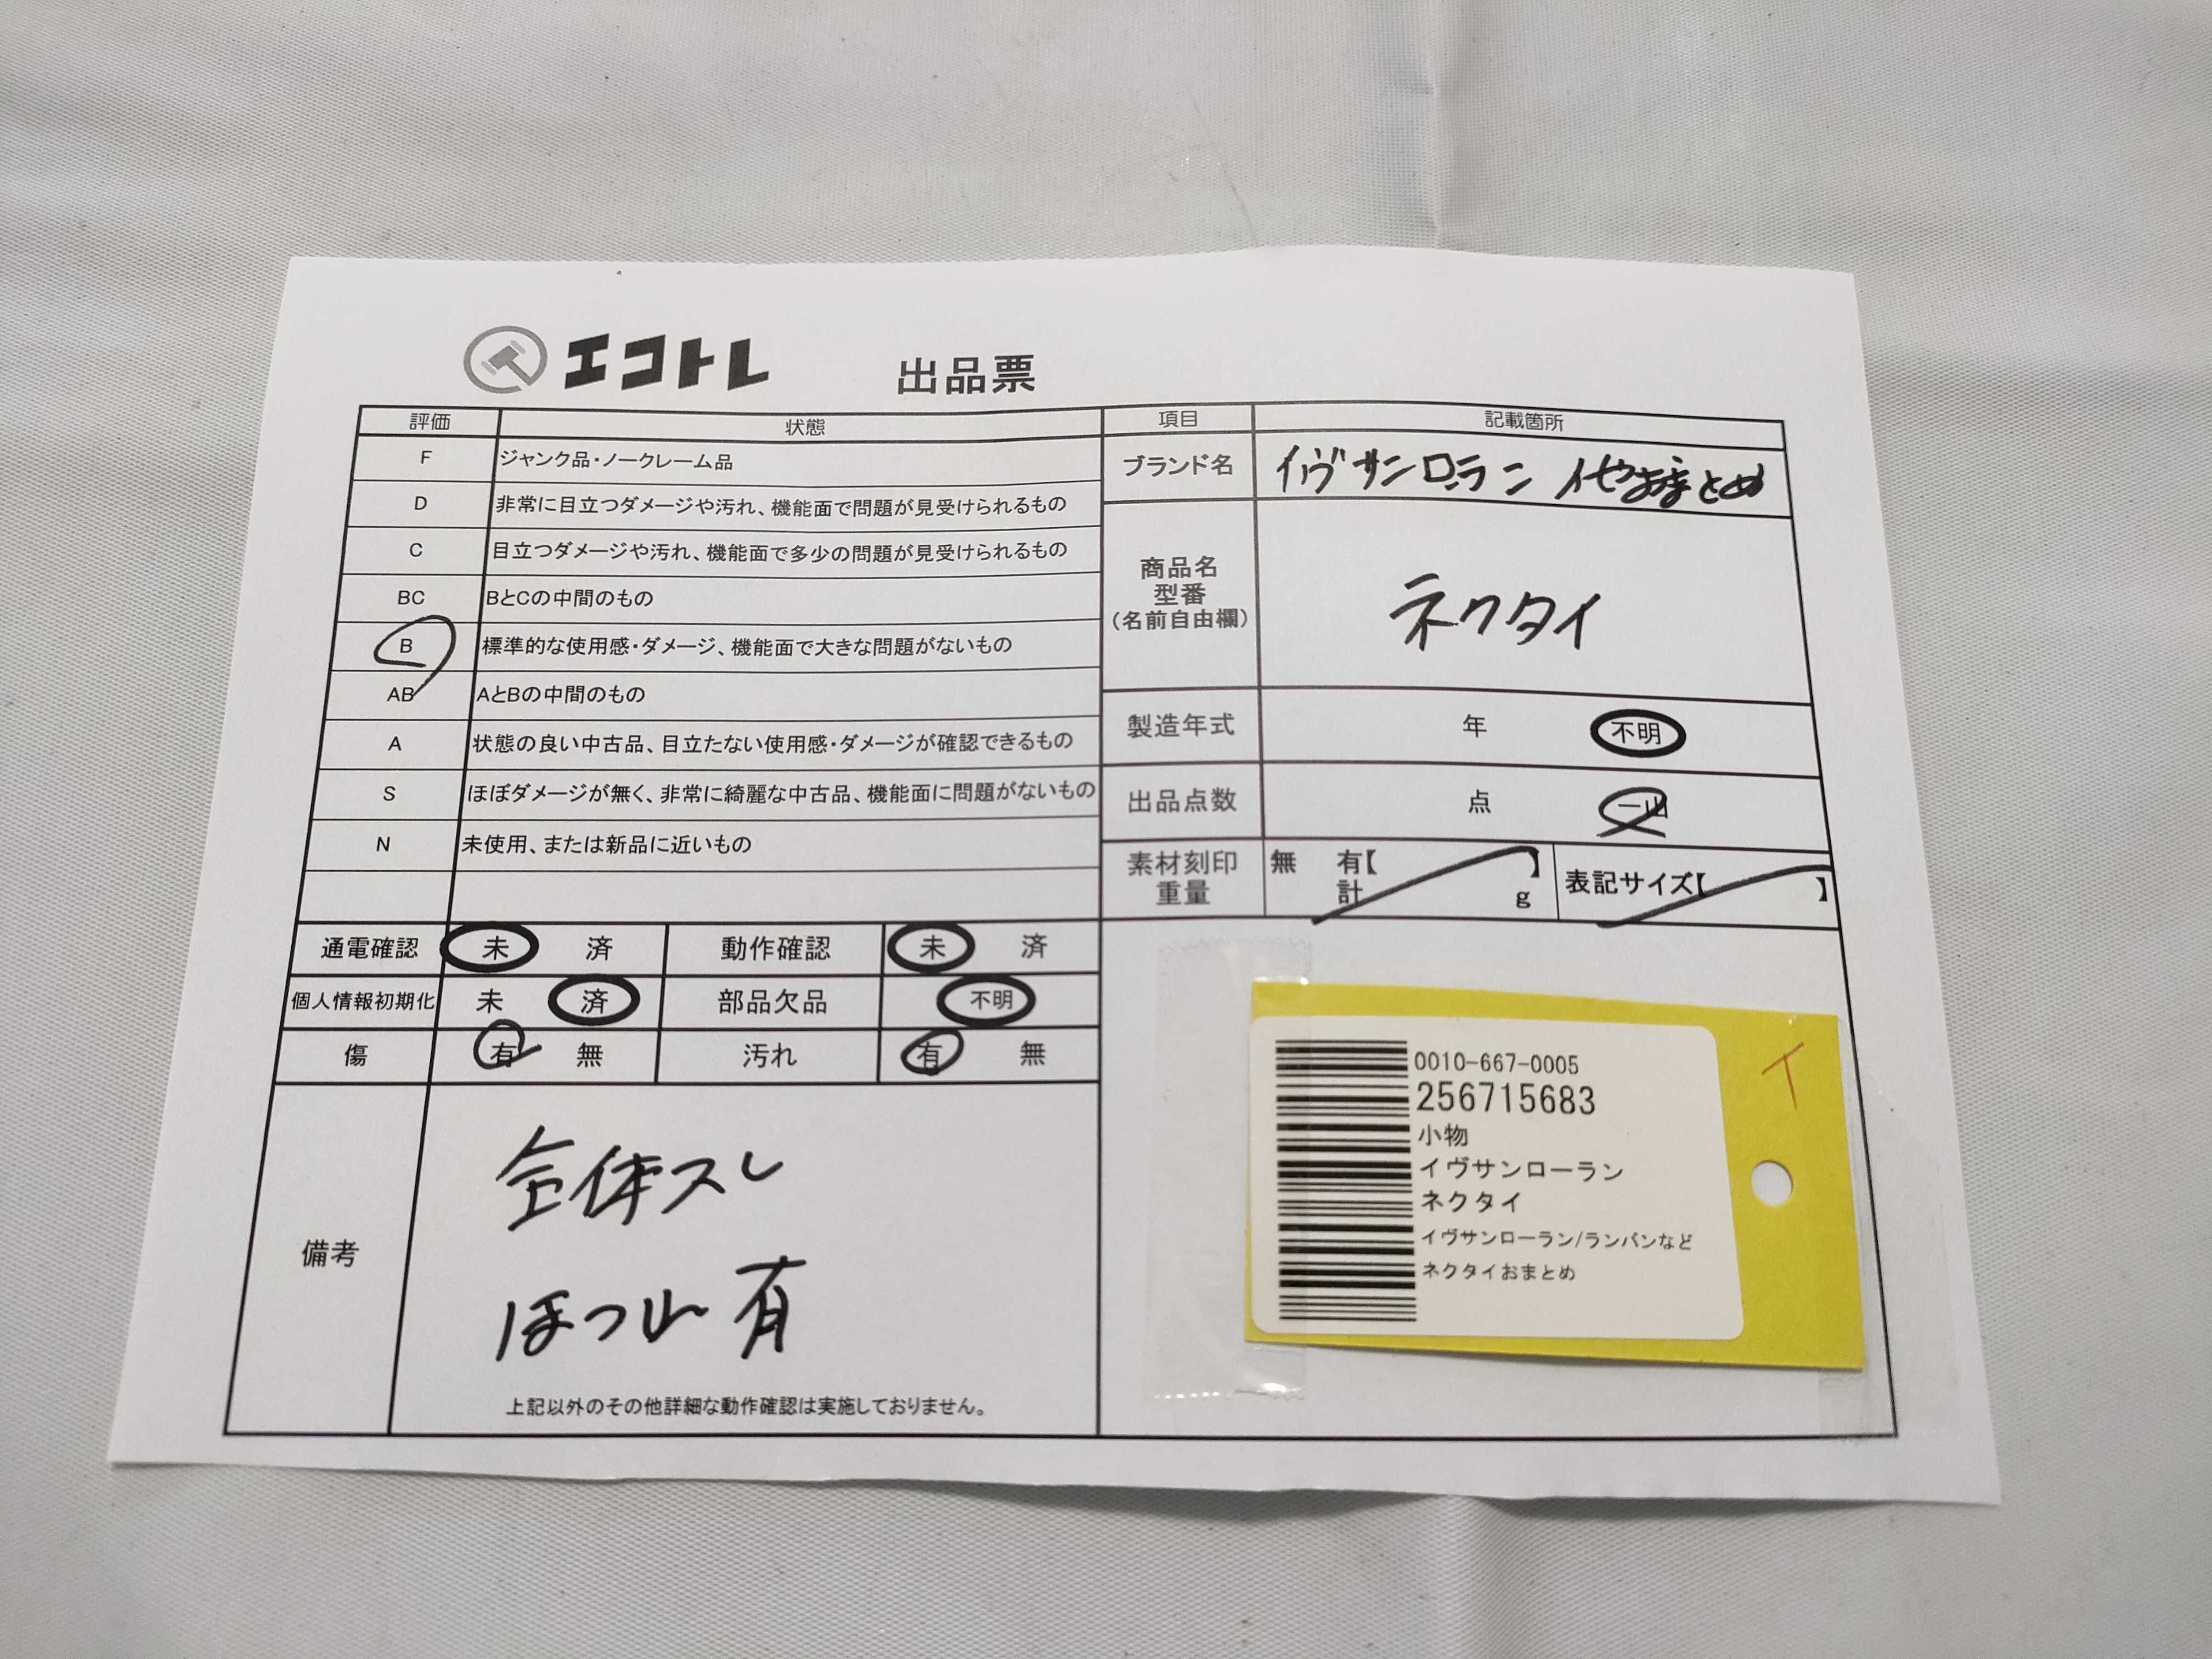 エコトレ 出品票
評価 状態
F ジャンク品・ノークレーム品
D 非常に目立つダメージや汚れ、機能面で問題が見受けられるもの
C 目立つダメージや汚れ、機能面で多少の問題が見受けられるもの
BC BとCの中間のもの
B 標準的な使用感・ダメージ、機能面で大きな問題がないもの
AB AとBの中間のもの
A 状態の良い中古品、目立たない使用感・ダメージが確認できるもの
S ほぼダメージが無く、非常に綺麗な中古品、機能面に問題がないもの
N 未使用、または新品に近いもの
項目 記載箇所
ブランド名 イヴサンローラン 他おまとめ
商品名
型番
(名前自由欄)
ネクタイ
製造年式 年 不明
出品点数 点 一山
素材刻印 無 有【 】
重量 計 g
表記サイズ【 】
通電確認 未 済 動作確認 未 済
個人情報初期化 未 済 部品欠品 不明
傷 有 無 汚れ 有 無
備考
全体スレ
ほつれ有
上記以外のその他詳細な動作確認は実施しておりません。
0010-667-0005
256715683
小物
イヴサンローラン
ネクタイ
イヴサンローラン/ランバンなど
ネクタイおまとめ
イ